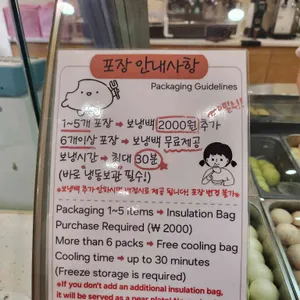 포장 안내사항
Packaging Guidelines
1~5개 포장 → 보냉백 2000원 추가
6개이상 포장 → 보냉백 무료제공
보냉시간 → 최대 30분
(바로 냉동보관 필수!)
Packaging 1~5 items → Insulation Bag
Purchase Required (₩ 2000)
More than 6 packs → Free cooling bag
Cooling time → up to 30 minutes
(Freeze storage is required)
※If you don't add an additional insulation bag,
it will be served as a